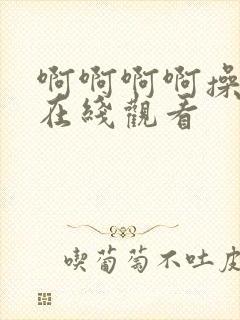 啊啊啊啊操
在綫觀看
喫葡萄不吐皮